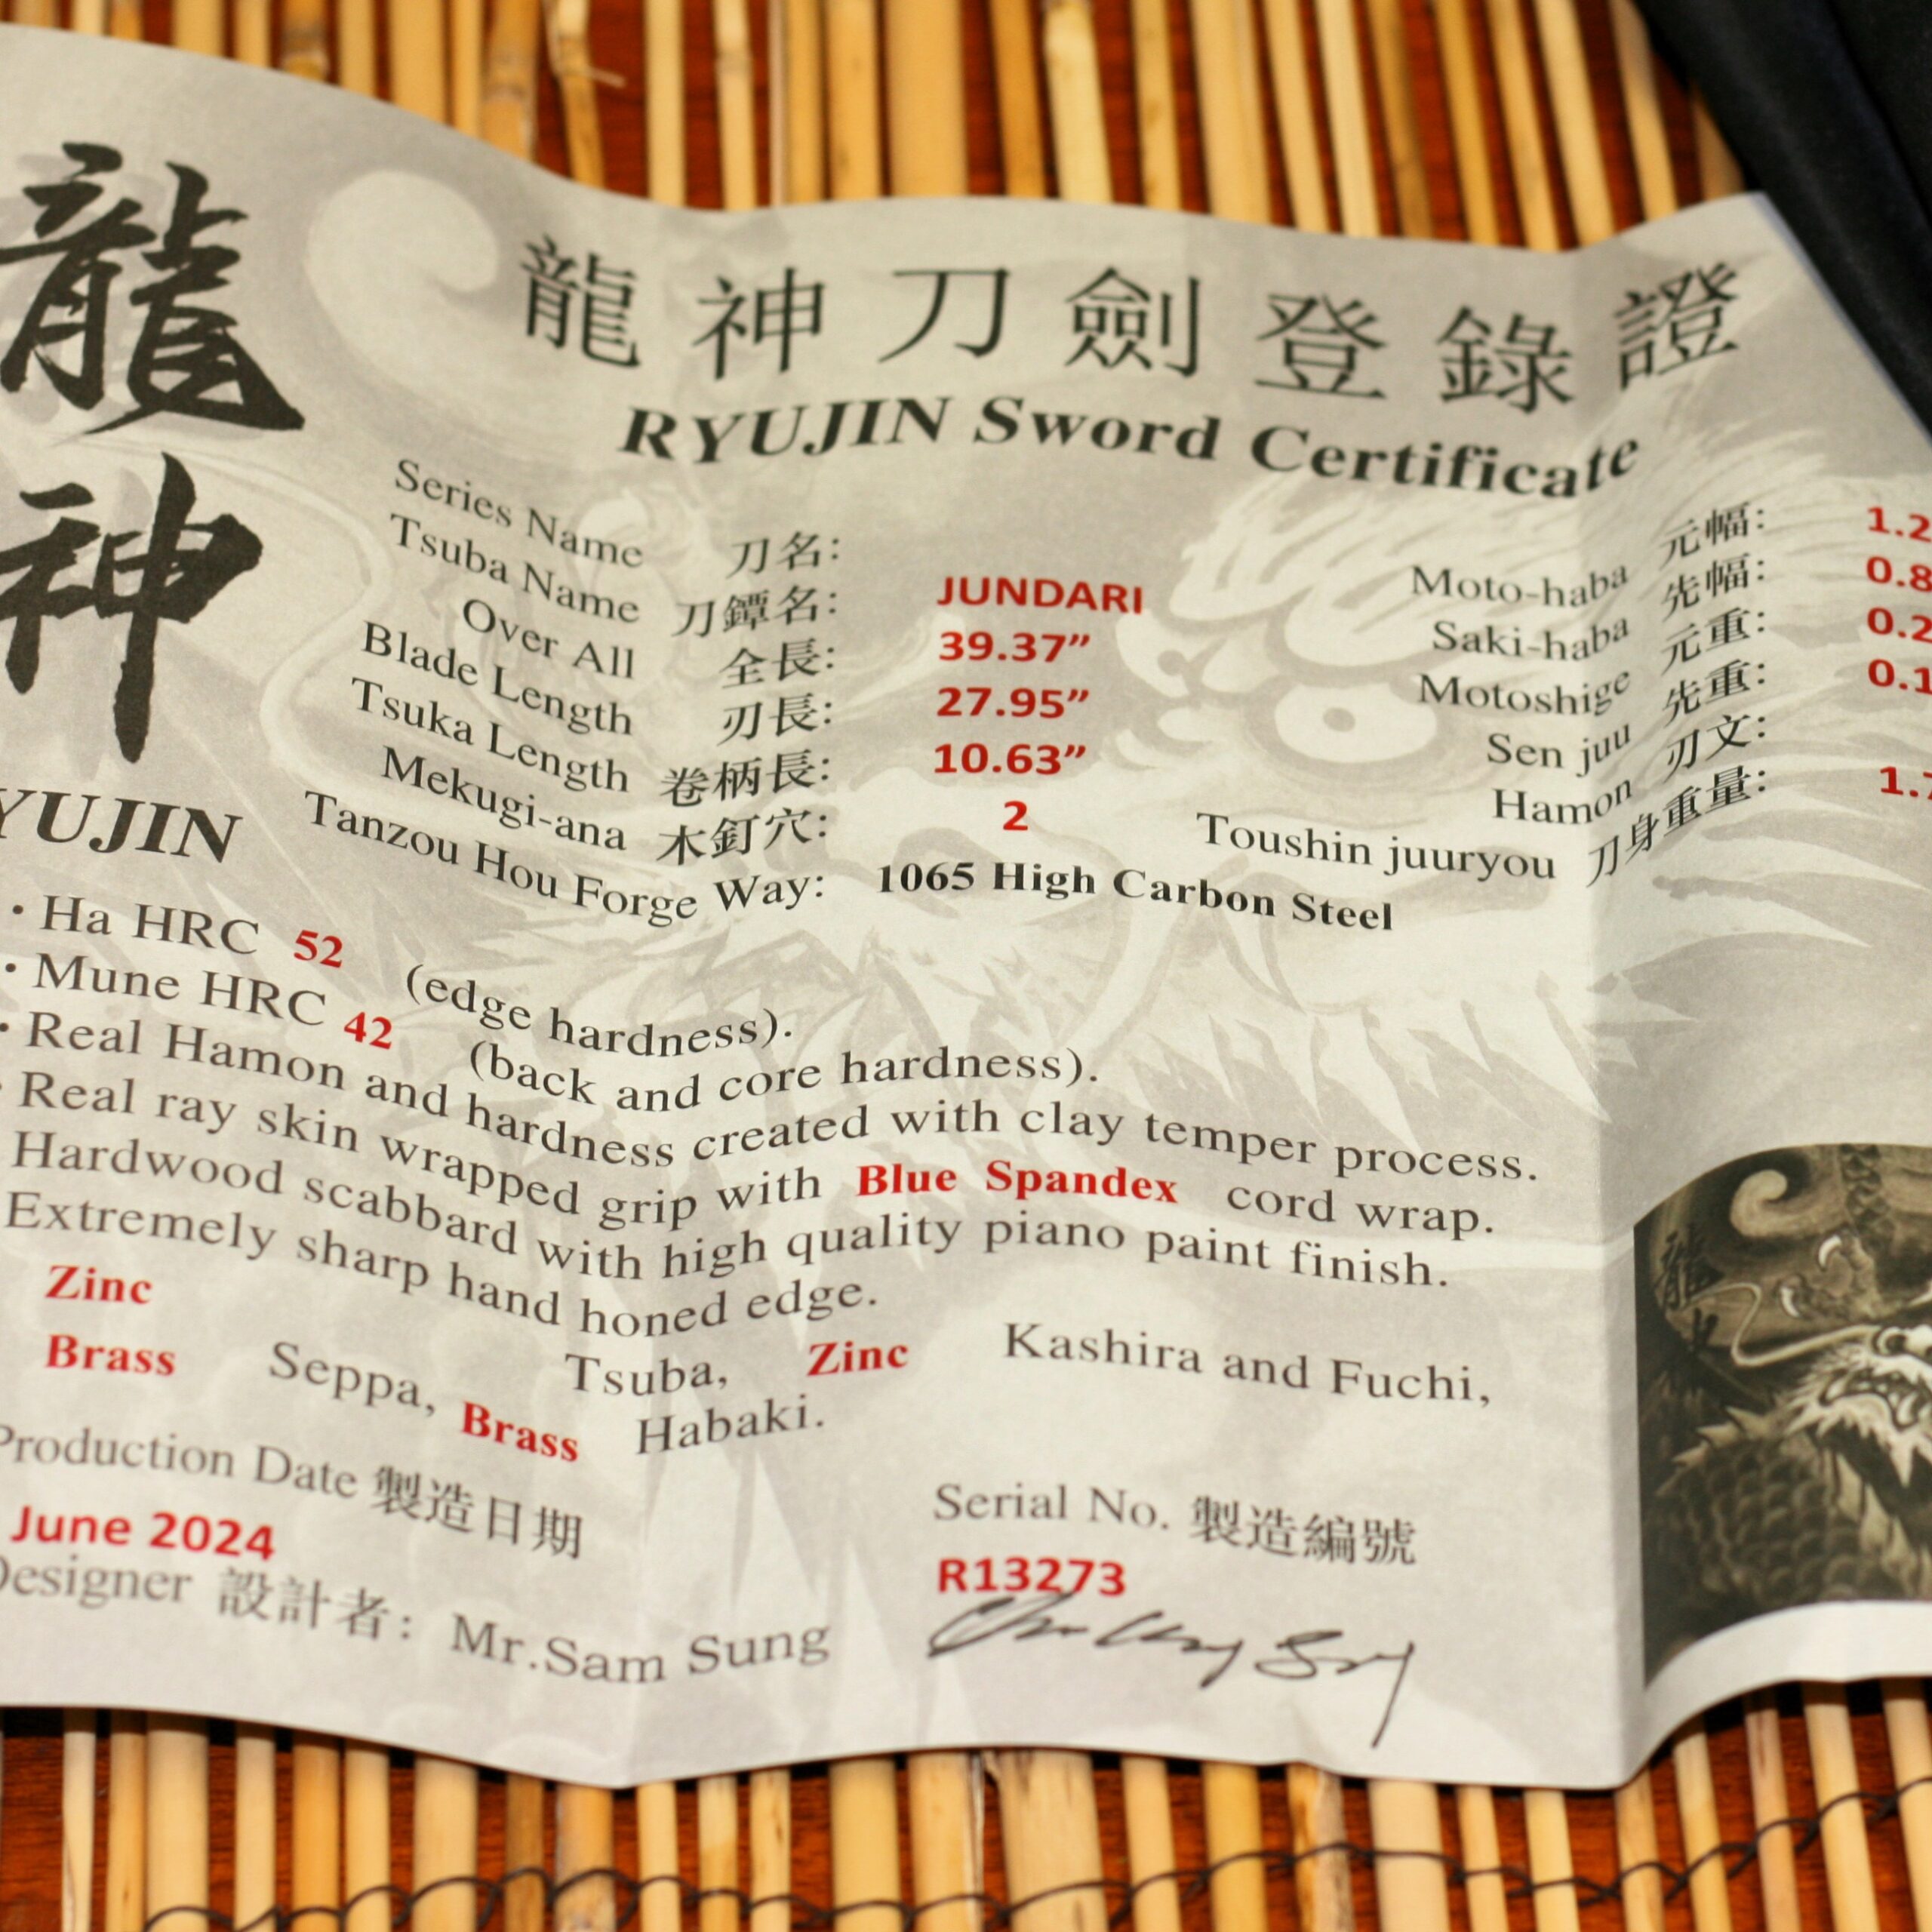 龍神
YUJIN
龍神刀劍登錄證
RYUJIN Sword Certificate
Series Name 刀名:
Tsuba Name 刀鐔名: JUNDARI
Over All 全長: 39.37”
Blade Length 刃長: 27.95”
Tsuka Length 卷柄長: 10.63”
Mekugi-ana 木釘穴: 2
Tanzou Hou Forge Way: 1065 High Carbon Steel
Moto-haba 元幅: 1.2
Saki-haba 先幅: 0.8
Motoshige 元重: 0.2
Sen juu 先重: 0.1
Hamon 刃文:
Toushin juuryou 刀身重量: 1.7
· Ha HRC 52 (edge hardness).
· Mune HRC 42 (back and core hardness).
· Real Hamon and hardness created with clay temper process.
· Real ray skin wrapped grip with Blue Spandex cord wrap.
Hardwood scabbard with high quality piano paint finish.
Extremely sharp hand honed edge.
Zinc Tsuba, Zinc Kashira and Fuchi,
Brass Seppa, Brass Habaki.
Production Date 製造日期
June 2024
Serial No. 製造編號
R13273
Designer 設計者: Mr.Sam Sung